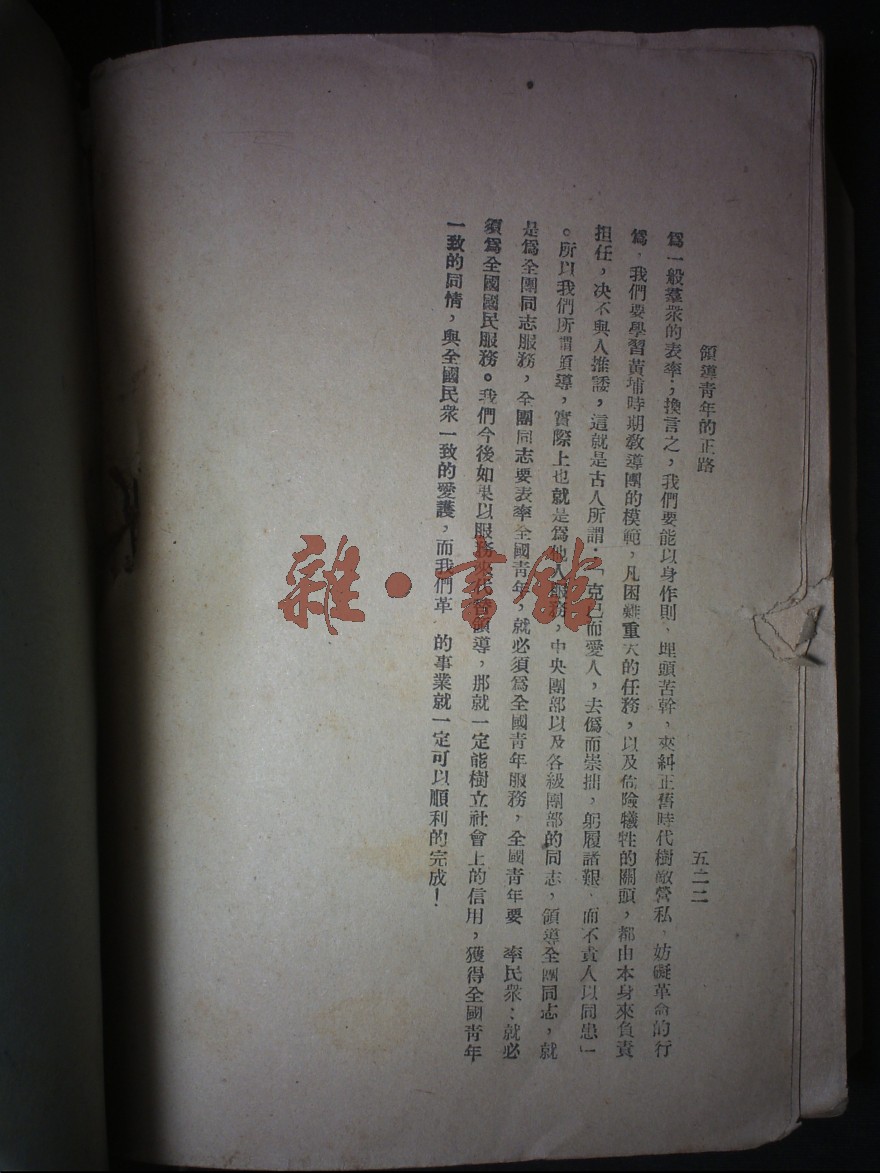 領導青年的正路
五二二
爲一般羣衆的表率；換言之，我們要能以身作則、埋頭苦幹，來糾正舊時代樹敵營私，妨礙革命的行
爲，我們要學習黃埔時期教導團的模範，凡困難重大的任務，以及危險犧牲的關頭，都由本身來負責
担任，决不與人推諉，這就是古人所謂：「克己而愛人，去僞而崇拙，躬履諸艱，而不責人以同患」
。所以我們所謂領導，實際上也就是爲他人服務，中央團部以及各級團部的同志，領導全團同志，就
是爲全團同志服務，全團同志要表率全國青年，就必須爲全國青年服務，全國青年要 率民衆：就必
須爲全國國民服務。我們今後如果以服務來代替領導，那就一定能樹立社會上的信用，獲得全國青年
一致的同情，與全國民衆一致的愛護，而我們革 的事業就一定可以順利的完成！
雜·書館